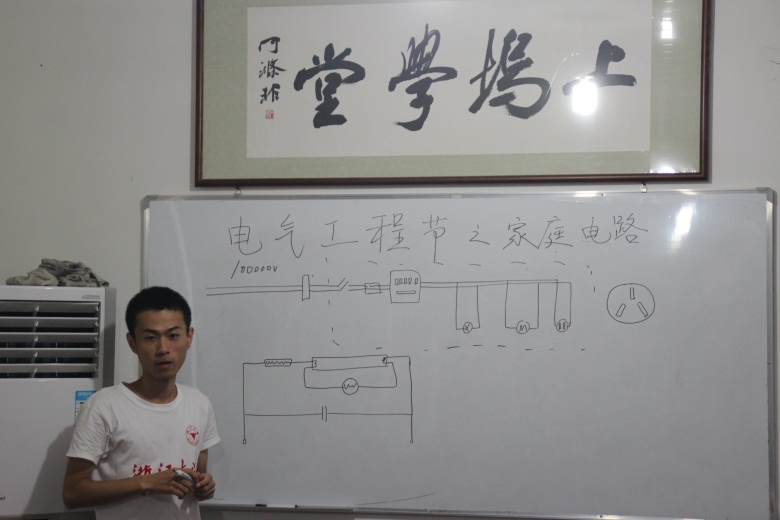 上塢學堂
电气工程节之家庭电路
100000V
M
浙江大